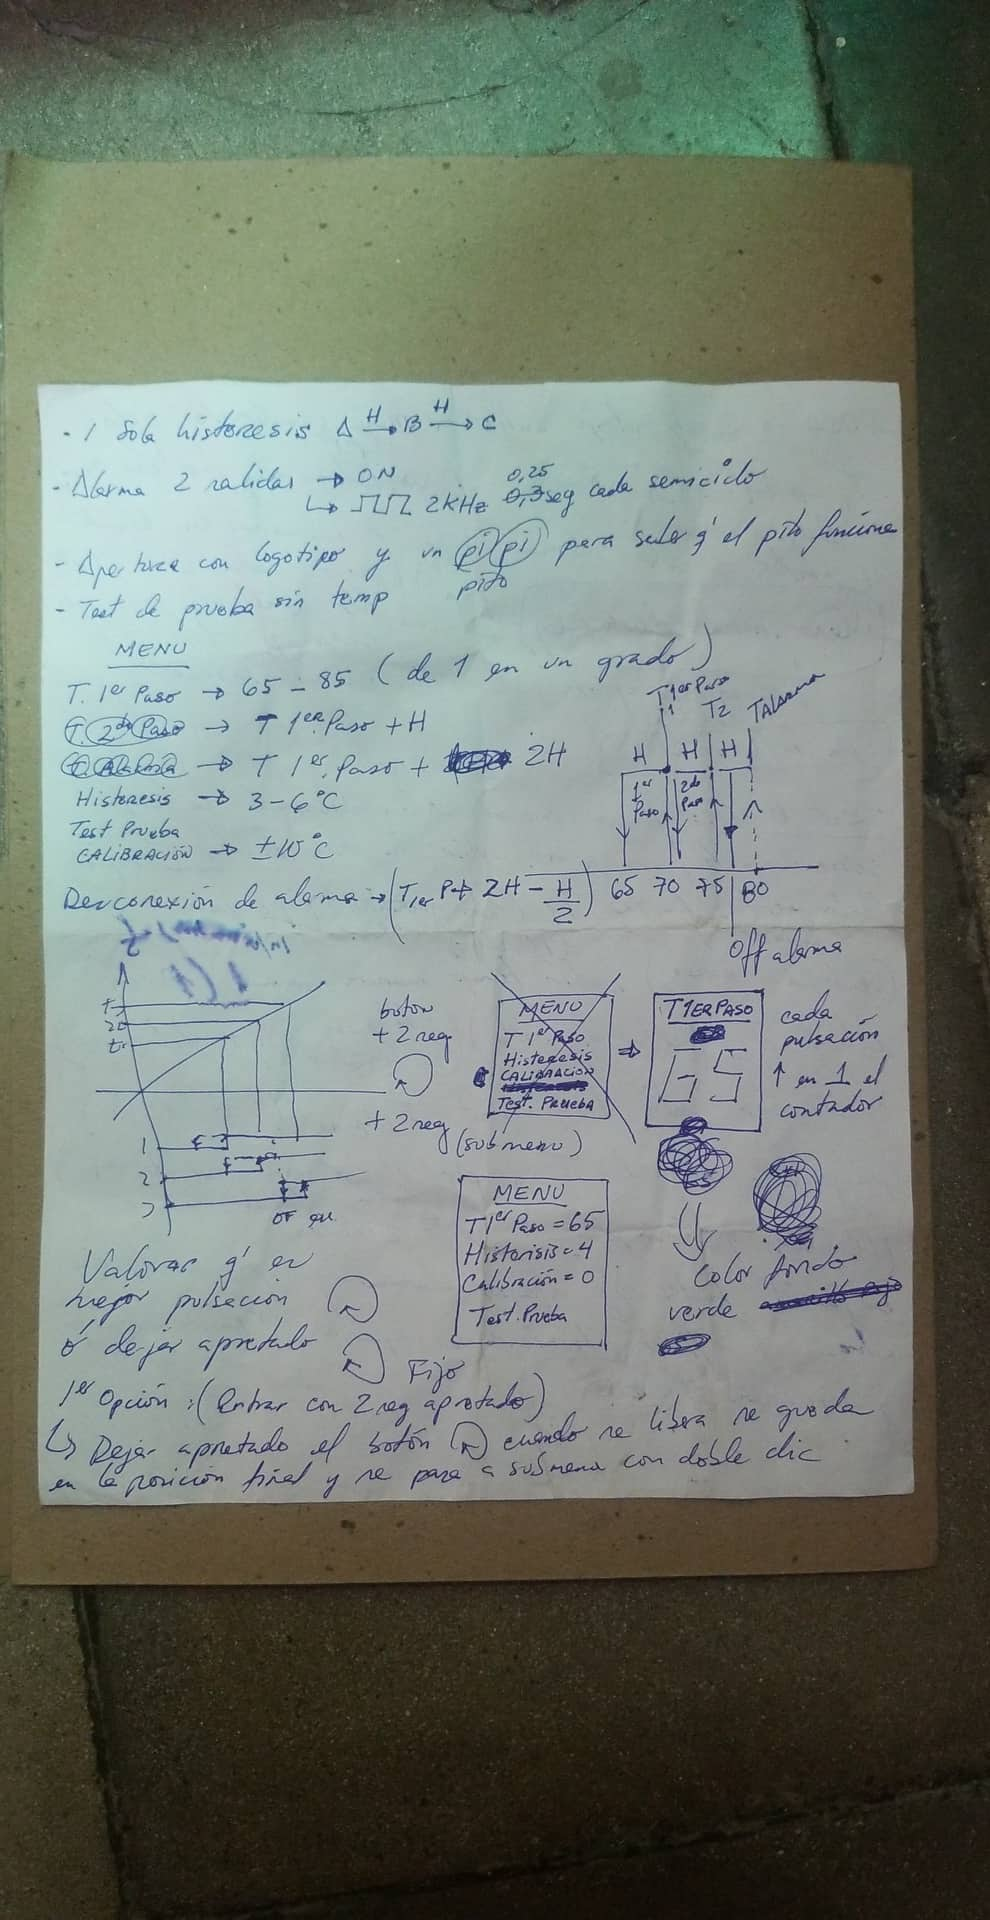 - 1 Sola histeresis A H→ B H→ C
- Alarma 2 salidas → ON
↳ 2 kHz 0,3 0,25 seg cada semiciclo
- Apertura con logotipo y un pi pi para saber q' el pito funciona
pito
- Test de prueba sin temp
MENU
T. 1er Paso → 65 - 85 (de 1 en un grado)
T. 2do Paso → T 1er. Paso + H
→ T 1er. Paso + 2H
Histeresis → 3 - 6°C
Test Prueba
CALIBRACIÓN → ±10°C
Desconexión de alarma → (T1er P + 2H - H/2)
T 1er Paso T2 TAlarma
1
H H H
1er Paso 2do Paso
65 70 75 80
Off alarma
1
2
3
OF
botón
+ 2 seg
+ 2 seg
(submenu)
MENU
T 1er Paso
Histeresis
CALIBRACION
Test. PRUEBA
⇒
T1ERPASO
65
cada
pulsación
↑ en 1 el
contador
MENU
T1er Paso = 65
Histerisis = 4
Calibración = 0
Test. Prueba
Color fondo
verde
Valorar q' es
mejor pulsación
ó dejar apretado
Fijo
1er Opción : (Entrar con 2 seg apretado)
↳ Dejar apretado el botón cuando se libera se queda
en la posición final y se pasa a submenu con doble clic